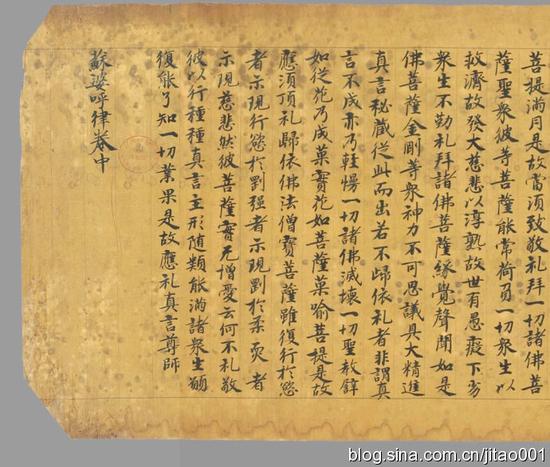 菩提滿月是故當須致敬礼拜一切諸佛菩
薩聖衆彼等菩薩能常荷負一切衆生以
救濟故發大慈悲以淳熟故世有愚癡下劣
衆生不勤礼拜諸佛菩薩緣覺聲聞如是
佛菩薩金剛等衆神力不可思議具大精進
真言秘藏從此而出若不歸依礼者非謂真
言不成亦乃輕慢一切諸佛滅壞一切聖教譬
如從花乃成菓實花如菩薩菓喻菩提是故
應須頂礼歸依佛法僧寶菩薩雖復行於慾
者示現行慾於剛強者示現剛於柔耎者
示現慈悲然彼菩薩實无增愛云何不礼敬
彼以行種種真言主形随類能滿諸衆生願
復能了知一切業果是故應礼真言尊師
蘇婆呼律卷中
blog.sina.com.cn/jitao001